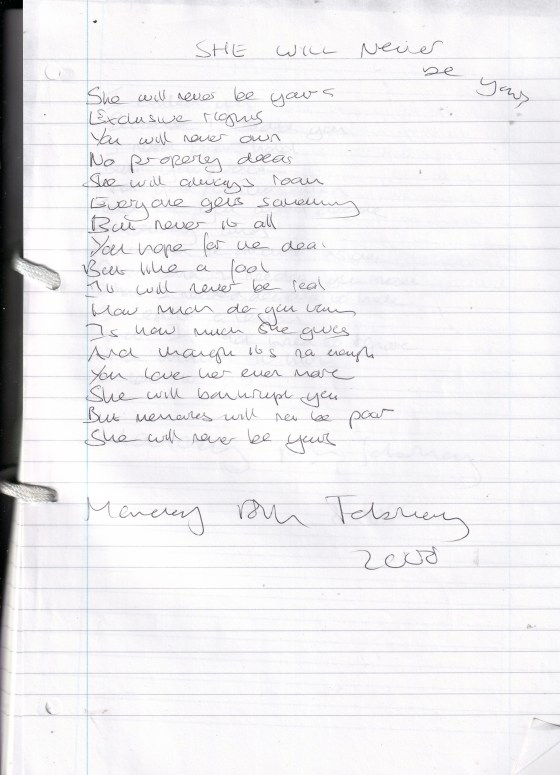 SHE WILL Never
be yours
She will never be yours
Exclusive rights
You will never own
No property deeds
She will always roam
Everyone gets something
But never it all
You hope for the deal
But like a fool
It will never be real
How much do you
Is how much she gives
And though its no enough
You love her even more
She will bankrupt you
But memories will not be poor
She will never be yours
Monday February
2008